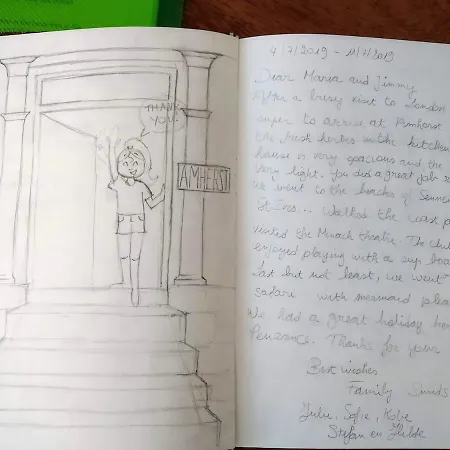 THANK
YOU
AMHERST
4/7/2019 - 11/7/2019
Dear Maria and Jimmy
After a busy visit to London
super to arrive at Amherst
the fresh herbs in the kitchen
house is very spacious and the
very light. You did a great job
we went to the beaches of Sennen
St Ives... Walked the coast p
visited the Minack theatre. The
enjoyed playing with a sup boa
last but not least, we went
safari with mermaid plea
We had a great holiday her
Penzance. Thanks for your
Best wishes
Family
Julie, Sofie, Kobe
Stefan en Hilde